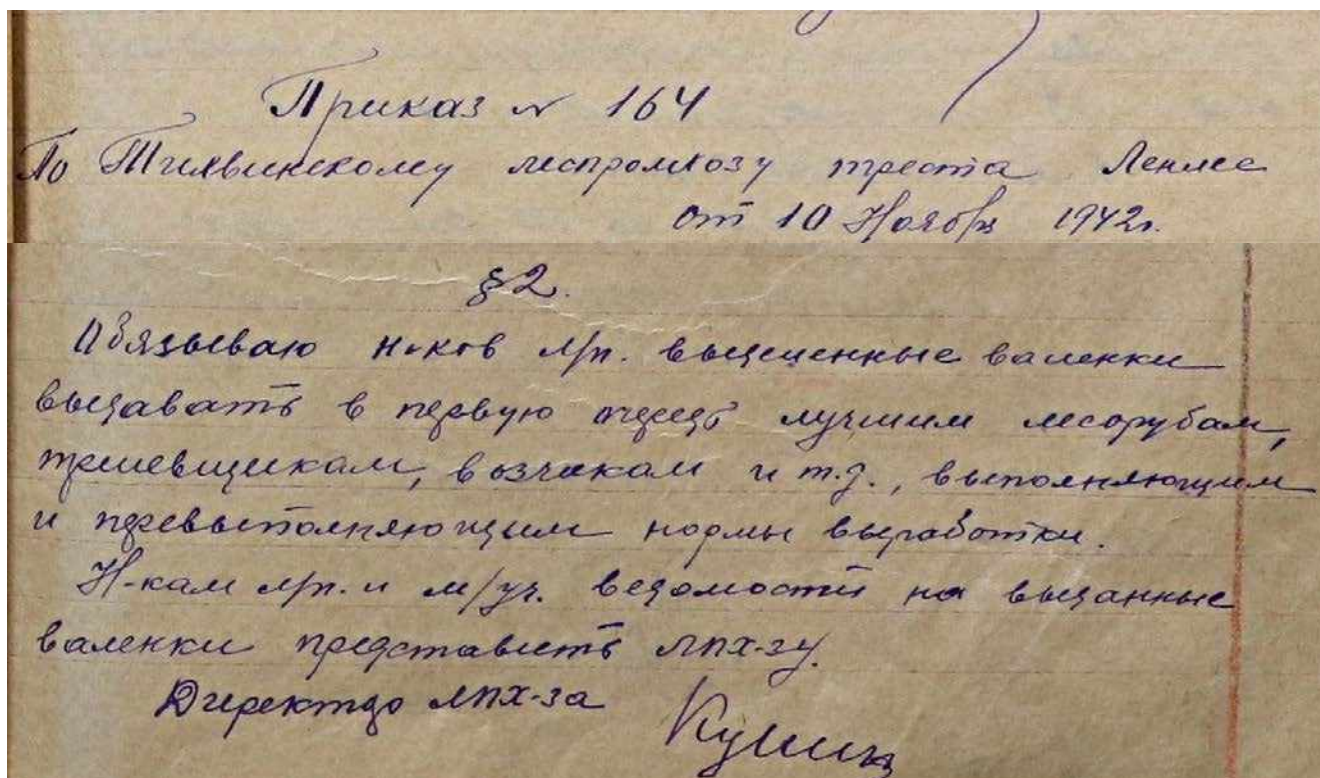 Приказ № 164
По Тихвинскому леспромхозу треста Ленлес
от 10 Ноября 1942г.
§2.
Обязываю н-ков л/п. выделенные валенки
выдавать в первую очередь лучшим лесорубам,
трелевщикам, возчикам и т.д., выполняющим
и перевыполняющим нормы выработки.
Н-кам л/п. и м/уч. ведомости на выданные
валенки представить ЛПХ-зу.
Директор ЛПХ-за